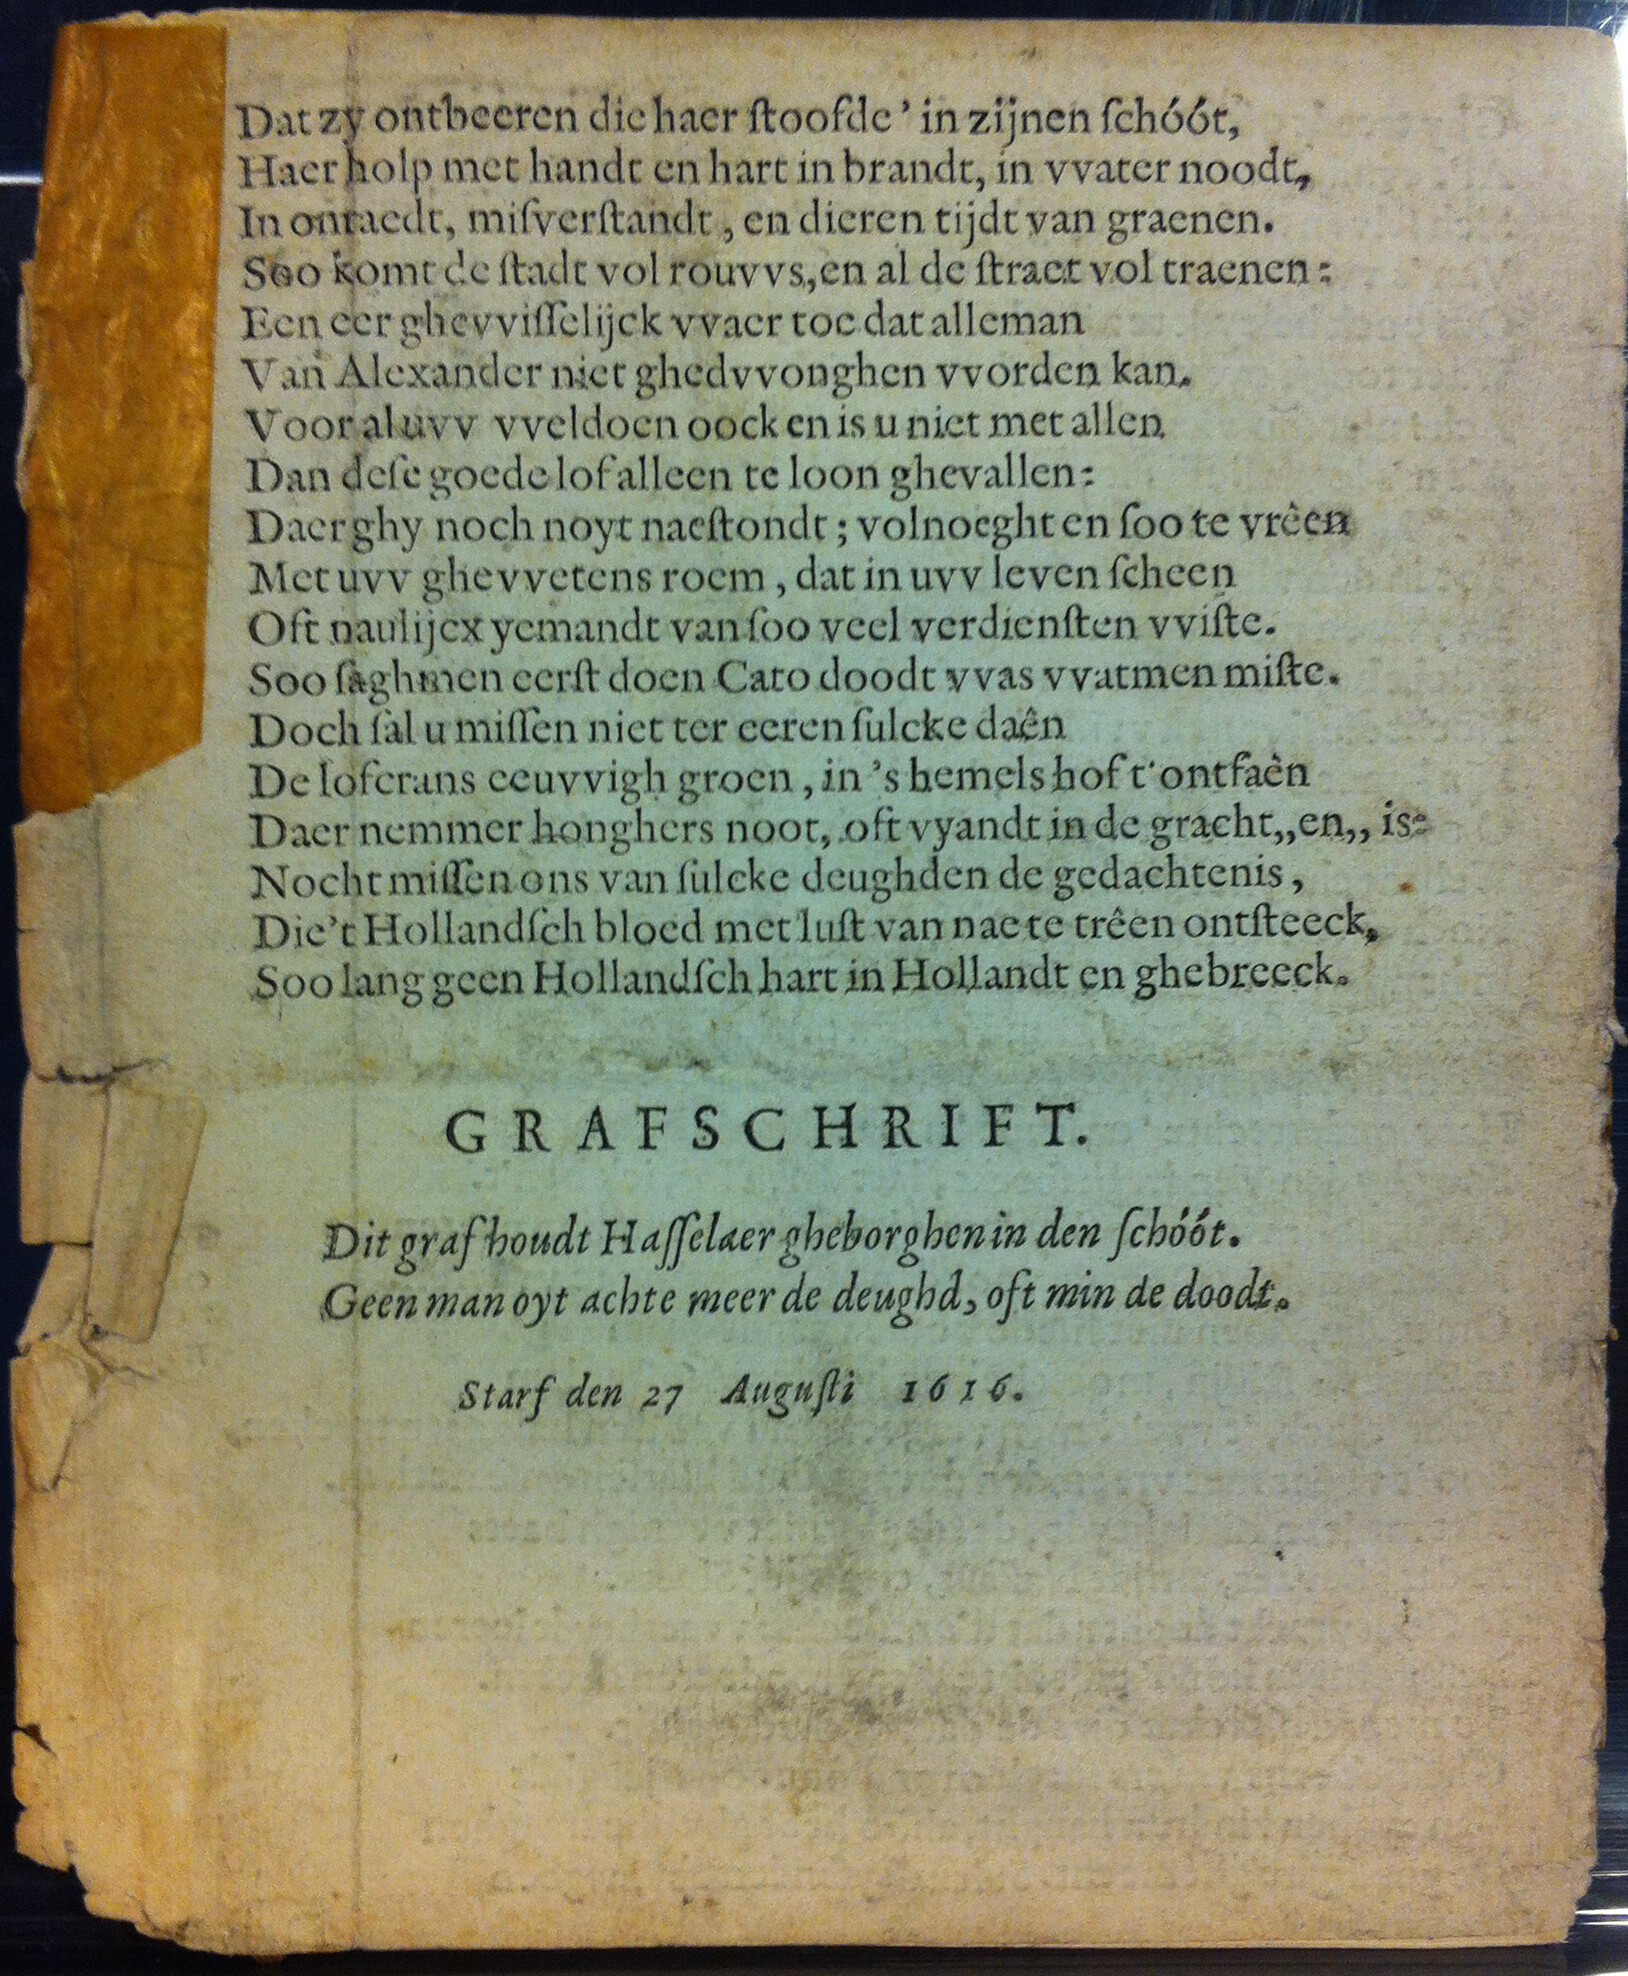 Dat zy ontbeeren die haer ſtoofde’ in zijnen ſchóót,
Haer holp met handt en hart in brandt, in vvater noodt,
In onraedt, miſverſtandt, en dieren tijdt van graenen.
Soo komt de ſtadt vol rouvvs, en al de ſtraet vol traenen:
Een eer ghevviſſelijck vvaer toe dat alleman
Van Alexander niet ghedvvonghen vvorden kan.
Voor al uvv vveldoen oock en is u niet met allen
Dan deſe goede lof alleen te loon ghevallen:
Daer ghy noch noyt naeſtondt; volnoeght en ſoo te vrêen
Met uvv ghevvetens roem, dat in uvv leven ſcheen
Oft naulijcx yemandt van ſoo veel verdienſten vviſte.
Soo ſaghmen eerſt doen Cato doodt vvas vvatmen miſte.
Doch ſal u miſſen niet ter eeren ſulcke daên
De lofcrans eeuvvigh groen, in ’s hemels hof t’ontfaên
Daer nemmer honghers noot, oft vyandt in de gracht,,en,, is:
Nocht miſſen ons van ſulcke deughden de gedachtenis,
Die’t Hollandſch bloed met luſt van nae te trêen ontſteeck,
Soo lang geen Hollandſch hart in Hollandt en ghebreeck.
GRAFSCHRIFT.
Dit graf houdt Haſſelaer gheborghen in den ſchóót.
Geen man oyt achte meer de deughd, oft min de doodt.
Starf den 27 Auguſti 1616.